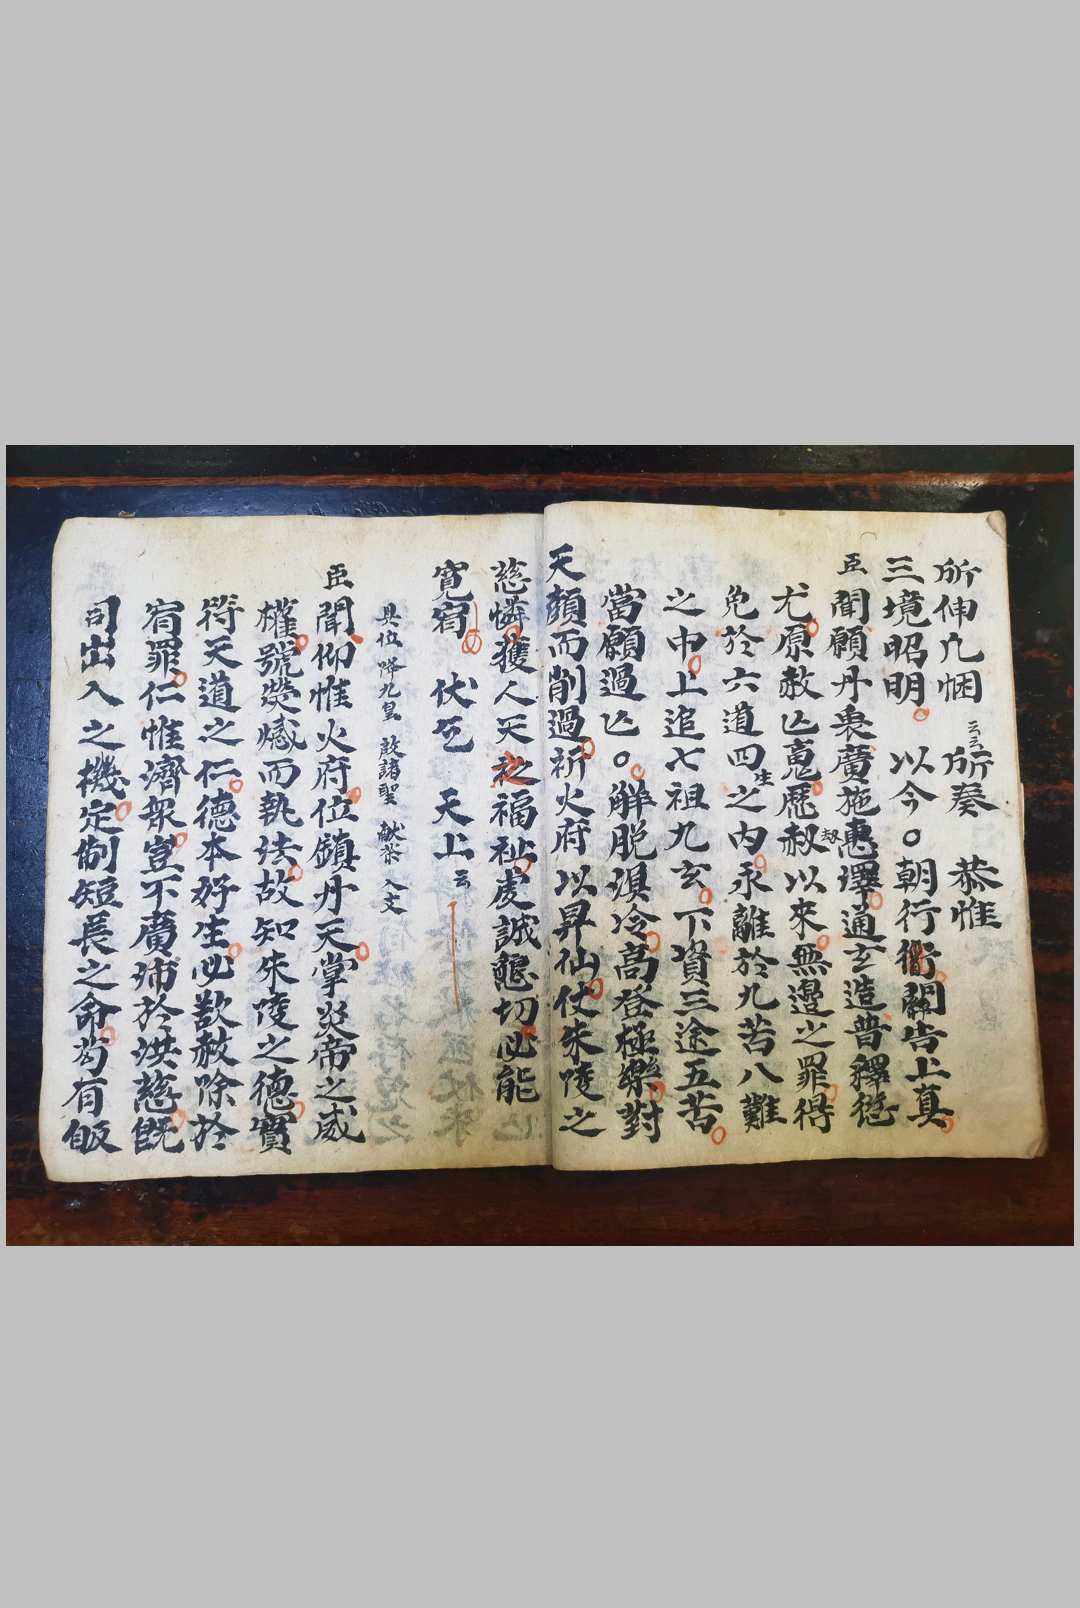 所伸凡悃 云云 所奏 恭惟
三境昭明 以今○朝行衛關告上真
臣聞願丹衷廣施惠澤通玄造普釋愆
尤原赦亾䰟歷刼以來無邊之罪得
免於六道四生之內永離於九苦八難
之中上追七祖九玄下資三途五苦
當願過亾○解脫滇冷高登極樂對
天顏而削過祈火府以昇仙仗朱陵之
慈憐獲人天之福祉虔誠懇切必能
寬宥 伏乞 天上云
具位 降九皇 啟諸聖 献茶 入文
臣聞仰惟火府位鎮丹天掌炎帝之威
權號熒惑而執法故知朱陵之德實
符天道之仁德本好生必歆赦除於
宥罪仁惟濟衆豈不廣沛於洪慈既
司出入之機定制短長之命茍有皈